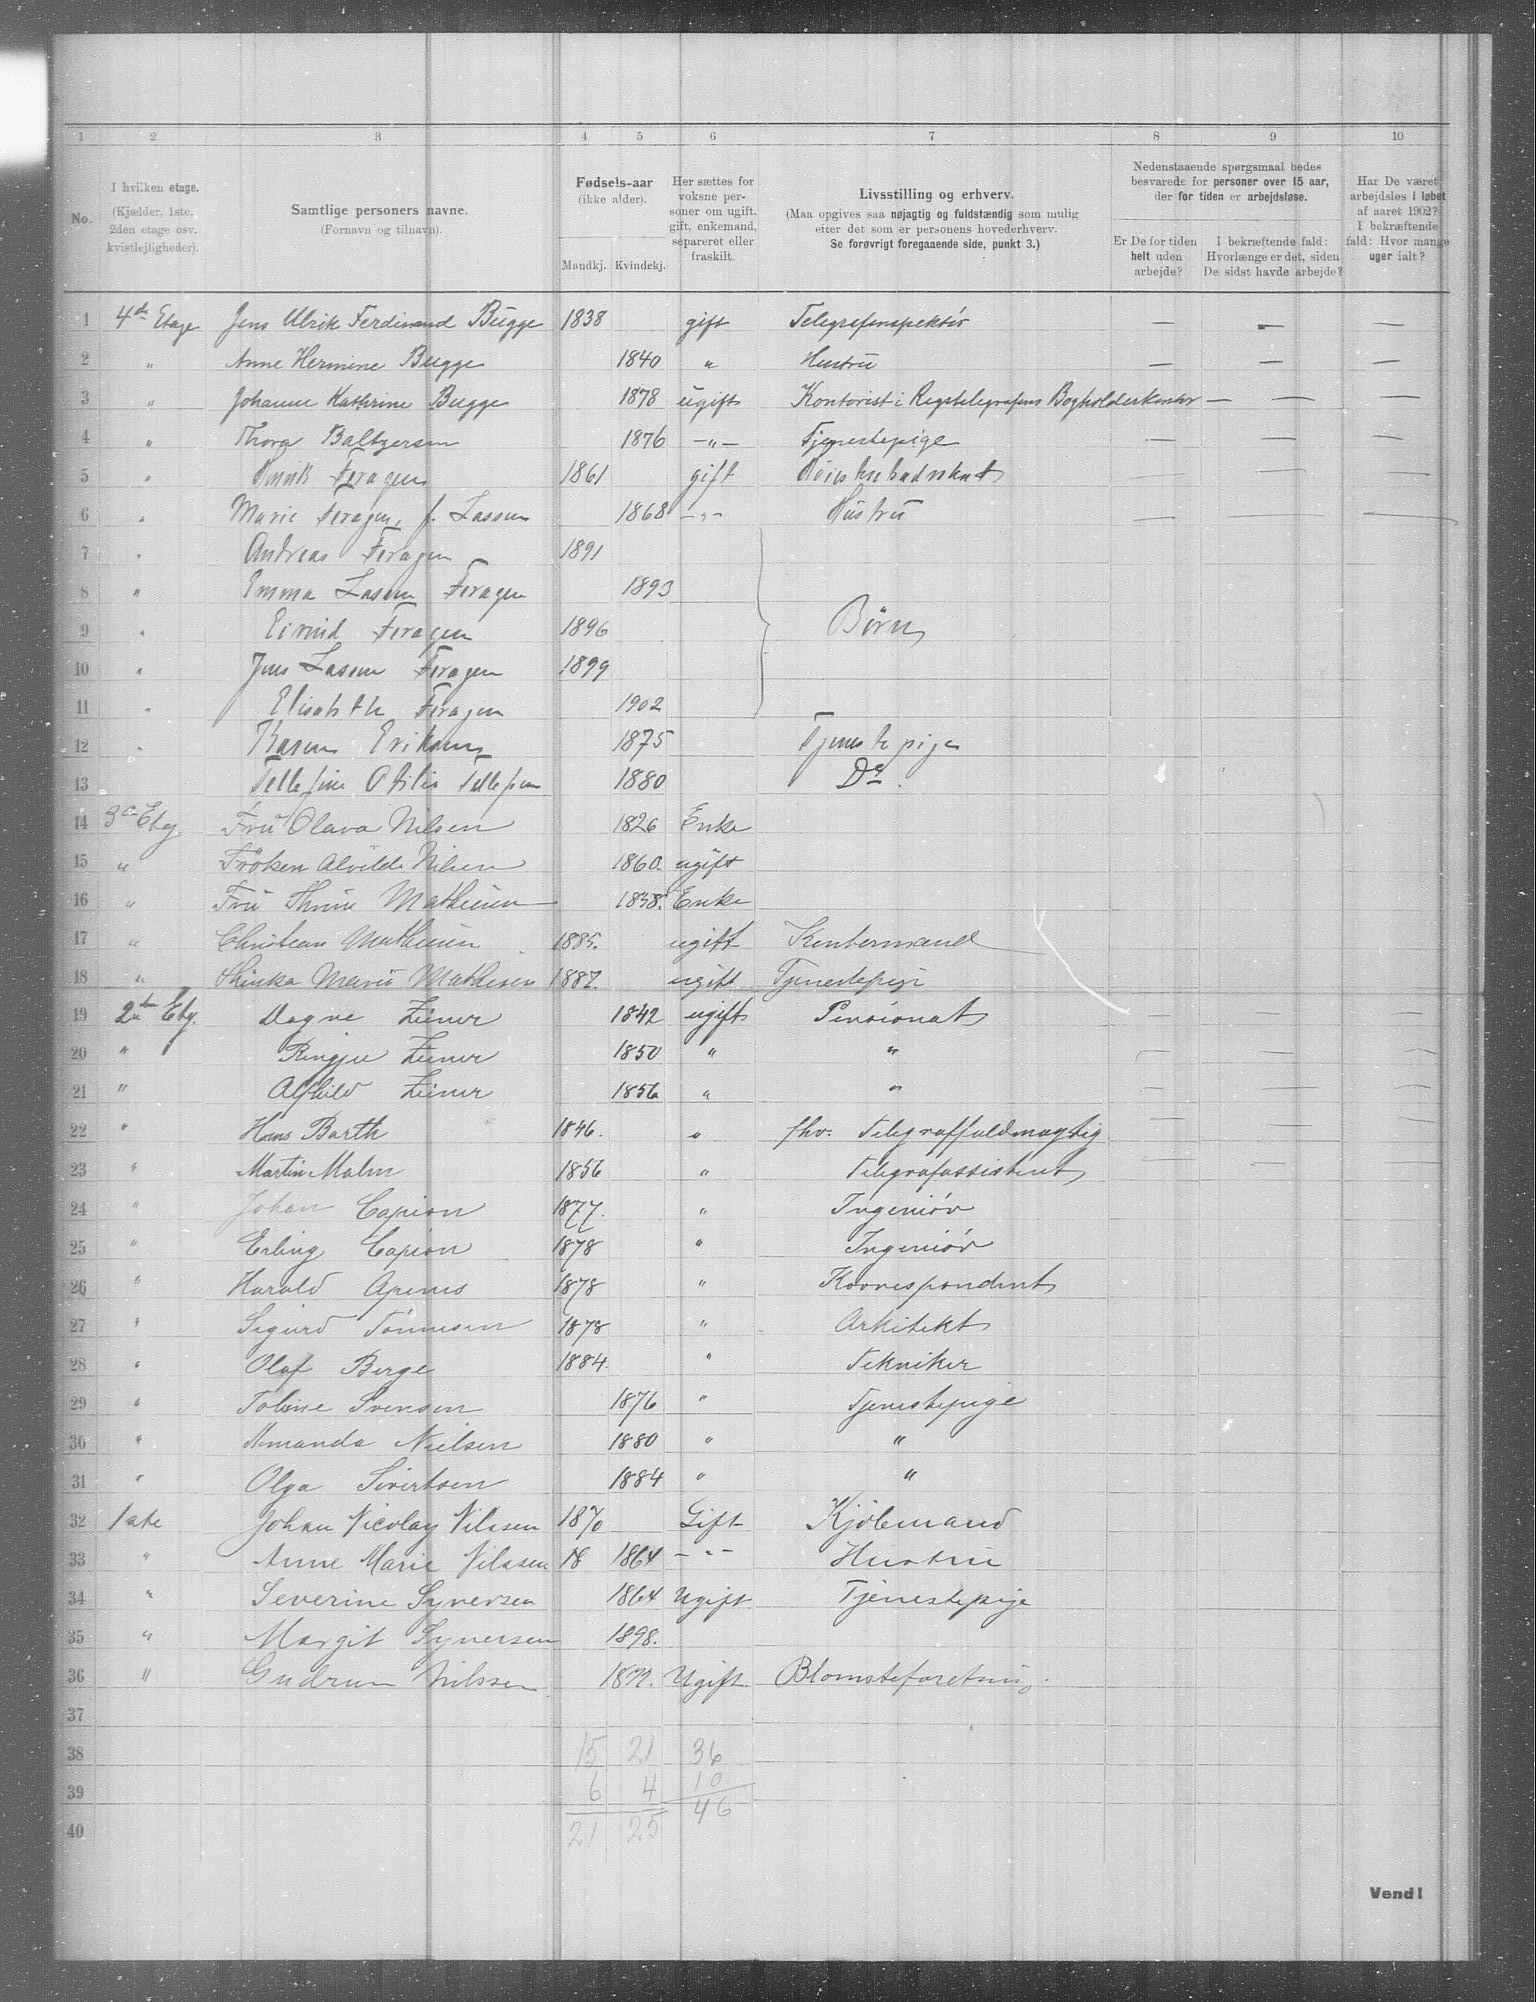 1 2 3 4 5 6 7 8 9 10
No.
I hvilken etage. (Kjælder, 1ste, 2den etage osv. kvistlejligheder).
Samtlige personers navne. (Fornavn og tilnavn).
Fødsels-aar (ikke alder). Mandkj. Kvindekj.
Her sættes for voksne personer om ugift, gift, enkemand, separeret eller fraskilt.
Livsstilling og erhverv. (Maa opgives saa nøjagtig og fuldstændig som mulig efter det som er personens hovederhverv. Se forøvrigt foregaaende side, punkt 3.)
Nedenstaaende spørgsmaal bedes besvarede for personer over 15 aar, der for tiden er arbejdsløse.
Er De for tiden helt uden arbejde?
I bekræftende fald: Hvorlænge er det, siden De sidst havde arbejde?
Har De været arbejdsløs i løbet af aaret 1902? I bekræftende fald: Hvor mange uger ialt?
1 4de Etage Jens Ulrik Ferdinand Bugge 1838 gift Telegrafinspektör — — —
2 " Anne Hermine Bugge 1840 " Hustru — — —
3 " Johanne Kathrine Bugge 1878 ugift Kontorist i Rigstelegrafens Bogholderkontor — — —
4 " Thora Baltzersen 1876 —"— Tjenestepige — — —
5 " Feragen 1861 gift — — —
6 " Marie Feragen, f. Lassen 1868 —"— Hustru — — —
7 " Andreas Feragen 1891
8 " Emma Lassen Feragen 1893
9 " Eivind Feragen 1896 Børn
10 " Jens Lassen Feragen 1899
11 " Elisabeth Feragen 1902
12 " Karen Eriksen 1875 Tjenestepige
13 Tellefine Otilie Tellefsen 1880 Do.
14 3die Etg. Fru Olava Nilsen 1826 Enke
15 " Fröken Alvilde Nilsen 1860. ugift
16 " Fru Mathiesen 1838. Enke
17 " Christian Mathiesen 1885. ugift Kontormand
18 " Marie Mathisen 1887. ugift Tjenestepige
19 2den Etg. Dagne Zeiner 1842 ugift Pensionat — — —
20 " Zeiner 1850 " " — — —
21 " Alfhild Zeiner 1856 " " — — —
22 " Hans Barth 1846. " fhv. Telegraffuldmægtig — — —
23 " Martin Malm 1856 " Telegrafassistent — — —
24 " Johan Capion 1877. " Ingeniör
25 " Erling Capion 1878 " Ingeniör
26 " Harald Apenes 1878 " Korrespondent
27 " Sigurd Tönnesen 1878 " Arkitekt
28 " Olaf Berge 1884. " Tekniker
29 " Toline Svensen 1876 " Tjenestepige
30 " Amanda Nielsen 1880 " "
31 " Olga Sivertsen 1884 " "
32 1ste Johan Nicolay Nilssen 1870 Gift Kjöbmand
33 " Anne Marie Nilssen 18 1864 —"— Hustru
34 " Severine Syversen 1864 Ugift Tjenestepige
35 " Margit Syversen 1898.
36 " Gudrun Nilssen Ugift Blomsteforetning.
37
38 15 21 36
39 6 4 10
40 21 25 46
Vend!